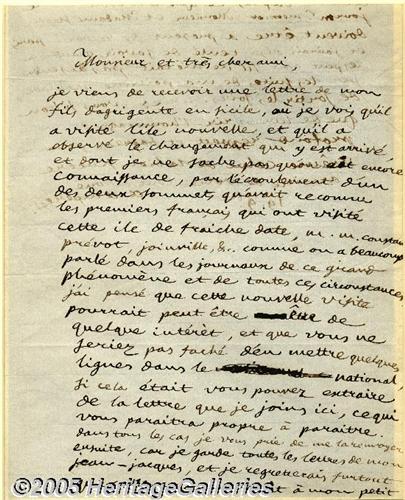 Monsieur et très cher ami,
je viens de recevoir une lettre de mon
fils d'agrigente en sicile, où je vois qu'il
a visité l'ile nouvelle, et qu'il a
observé le changement qui y est arrivé,
et dont je ne sache pas qu'on ait encore
connaissance, par l'écroulement d'un
des deux sommets qu'avait reconnu
les premiers français qui ont visité
cette ile de fraiche date, m. m. constant
prévot, joinville, &. comme on a beaucoup
parlé dans les journaux de ce grand
phénomène et de toutes ces circonstances,
j'ai pensé que cette nouvelle visite
pourrait peut être de
quelque intérèt, et que vous ne
seriez pas faché d'en mettre quelques
lignes dans le national,
si cela était vous pouvez extraire
de la lettre que je joins ici, ce qui
vous paraitra propre à paraitre.
dans tous les cas je vous prie de me la renvoyer
ensuite, car je garde toutes les lettres de mon
jean-jacques, et je regretterais surtout
à mon petit
©2005 HeritageGalleries